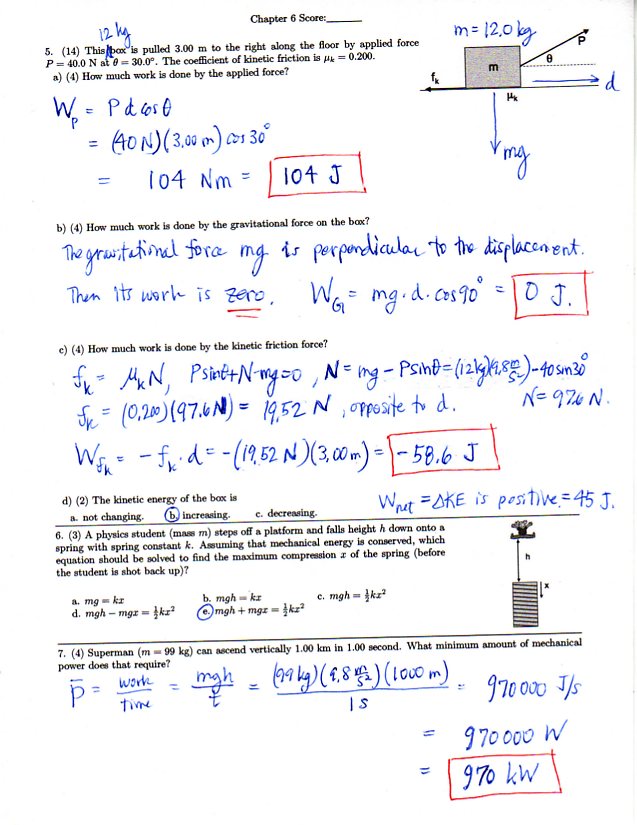 Chapter 6 Score:______
12 kg
5. (14) This box is pulled 3.00 m to the right along the floor by applied force
P = 40.0 N at θ = 30.0°. The coefficient of kinetic friction is μk = 0.200.
a) (4) How much work is done by the applied force?
m = 12.0 kg
P
θ
m
fk
μk
d
mg
Wp = P d cos θ
= (40 N)(3.00 m) cos 30°
= 104 Nm = 104 J
b) (4) How much work is done by the gravitational force on the box?
The gravitational force mg is perpendicular to the displacement.
Then its work is zero. WG = mg·d·cos 90° = 0 J.
c) (4) How much work is done by the kinetic friction force?
fk = μk N, P sinθ + N - mg = 0, N = mg - P sinθ = (12 kg)(9.8 m/s²) - 40 sin 30°
fk = (0.200)(97.6 N) = 19.52 N, opposite to d. N = 97.6 N.
Wfk = - fk · d = -(19.52 N)(3.00 m) = -58.6 J
d) (2) The kinetic energy of the box is
a. not changing. b. increasing. c. decreasing.
Wnet = ΔKE is positive. = 45 J.
6. (3) A physics student (mass m) steps off a platform and falls height h down onto a
spring with spring constant k. Assuming that mechanical energy is conserved, which
equation should be solved to find the maximum compression x of the spring (before
the student is shot back up)?
a. mg = kx b. mgh = kx c. mgh = ½kx²
d. mgh − mgx = ½kx² e. mgh + mgx = ½kx²
h
x
7. (4) Superman (m = 99 kg) can ascend vertically 1.00 km in 1.00 second. What minimum amount of mechanical
power does that require?
P̄ = work/time = mgh/t = (99 kg)(9.8 m/s²)(1000 m)/1 s = 970 000 J/s
= 970 000 W
= 970 kW